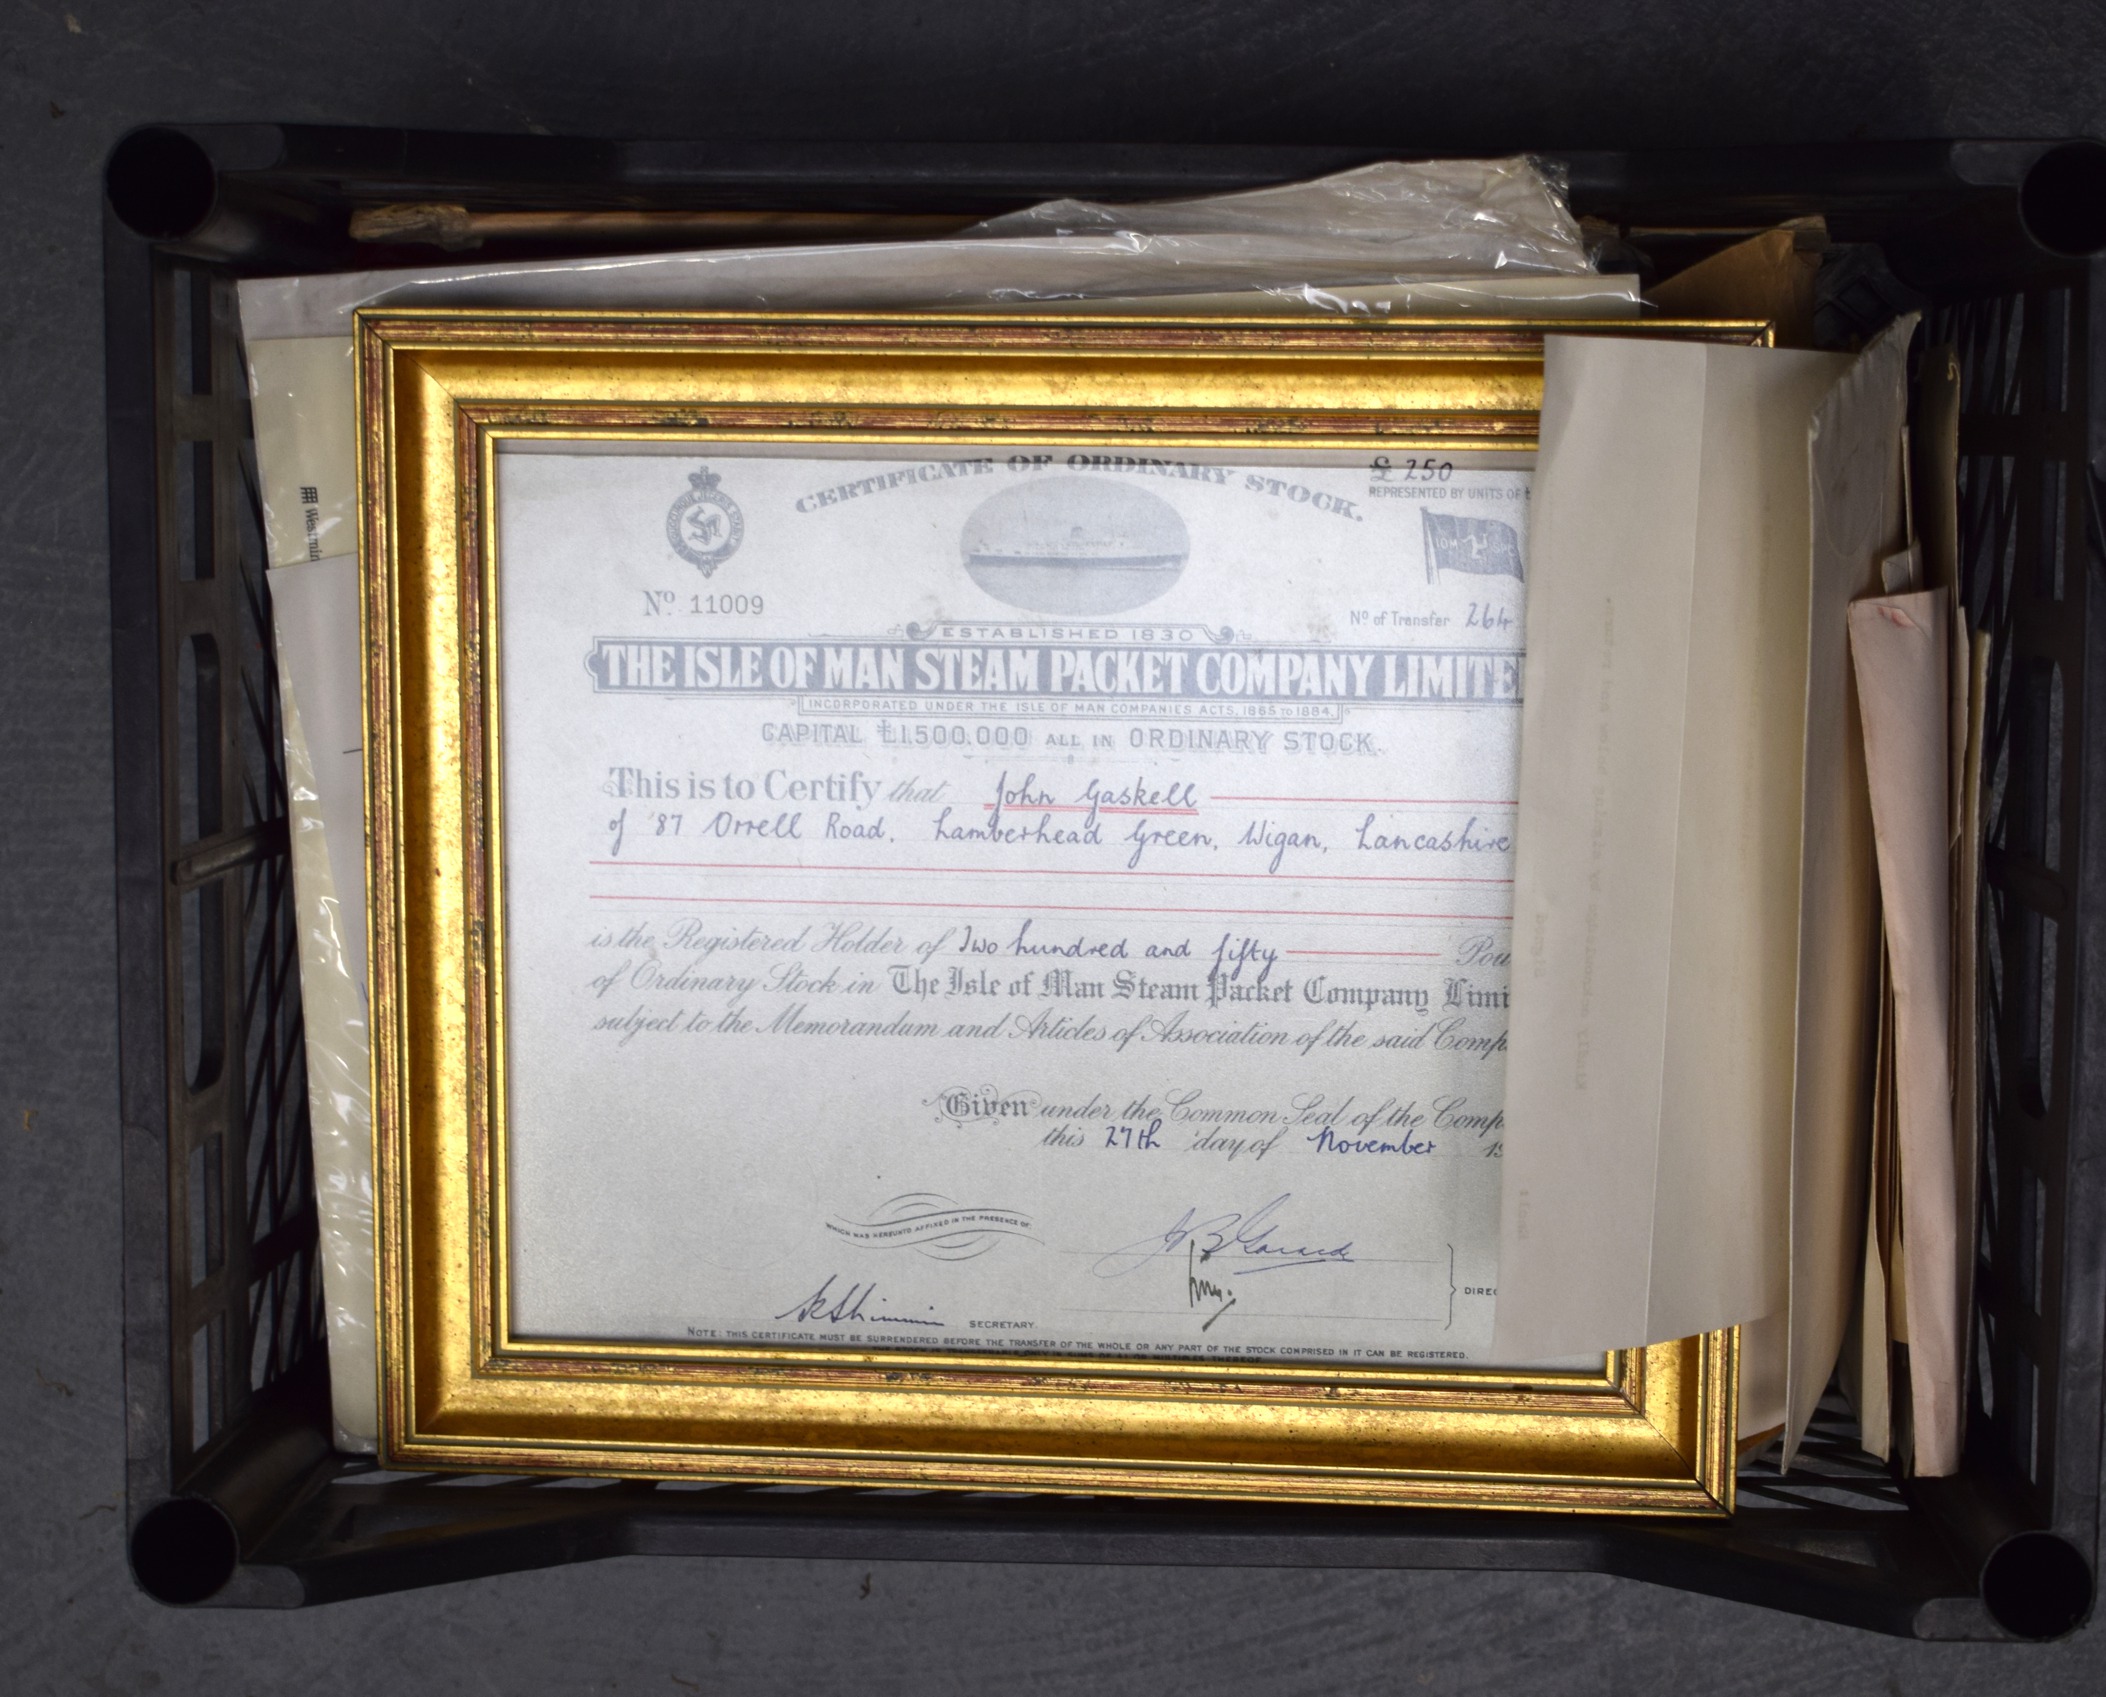 CERTIFICATE OF ORDINARY STOCK.
£ 250
REPRESENTED BY UNITS OF
IOM SP
Nº 11009
Nº of Transfer 264
ESTABLISHED 1830
THE ISLE OF MAN STEAM PACKET COMPANY LIMITE
INCORPORATED UNDER THE ISLE OF MAN COMPANIES ACTS, 1865 TO 1884.
CAPITAL £1,500,000 ALL IN ORDINARY STOCK.
This is to Certify that John Gaskell
of 87 Orrell Road, Lamberhead Green, Wigan, Lancashire
is the Registered Holder of Two hundred and fifty Pou
of Ordinary Stock in The Isle of Man Steam Packet Company Limi
subject to the Memorandum and Articles of Association of the said Comp
Given under the Common Seal of the Comp
this 27th day of November 19
WHICH WAS HEREUNTO AFFIXED IN THE PRESENCE OF:
DIREC
SECRETARY.
NOTE: THIS CERTIFICATE MUST BE SURRENDERED BEFORE THE TRANSFER OF THE WHOLE OR ANY PART OF THE STOCK COMPRISED IN IT CAN BE REGISTERED.
THE STOCK IS TRANSFERABLE ONLY IN SUMS OF £1 OR MULTIPLES THEREOF.
Westmin